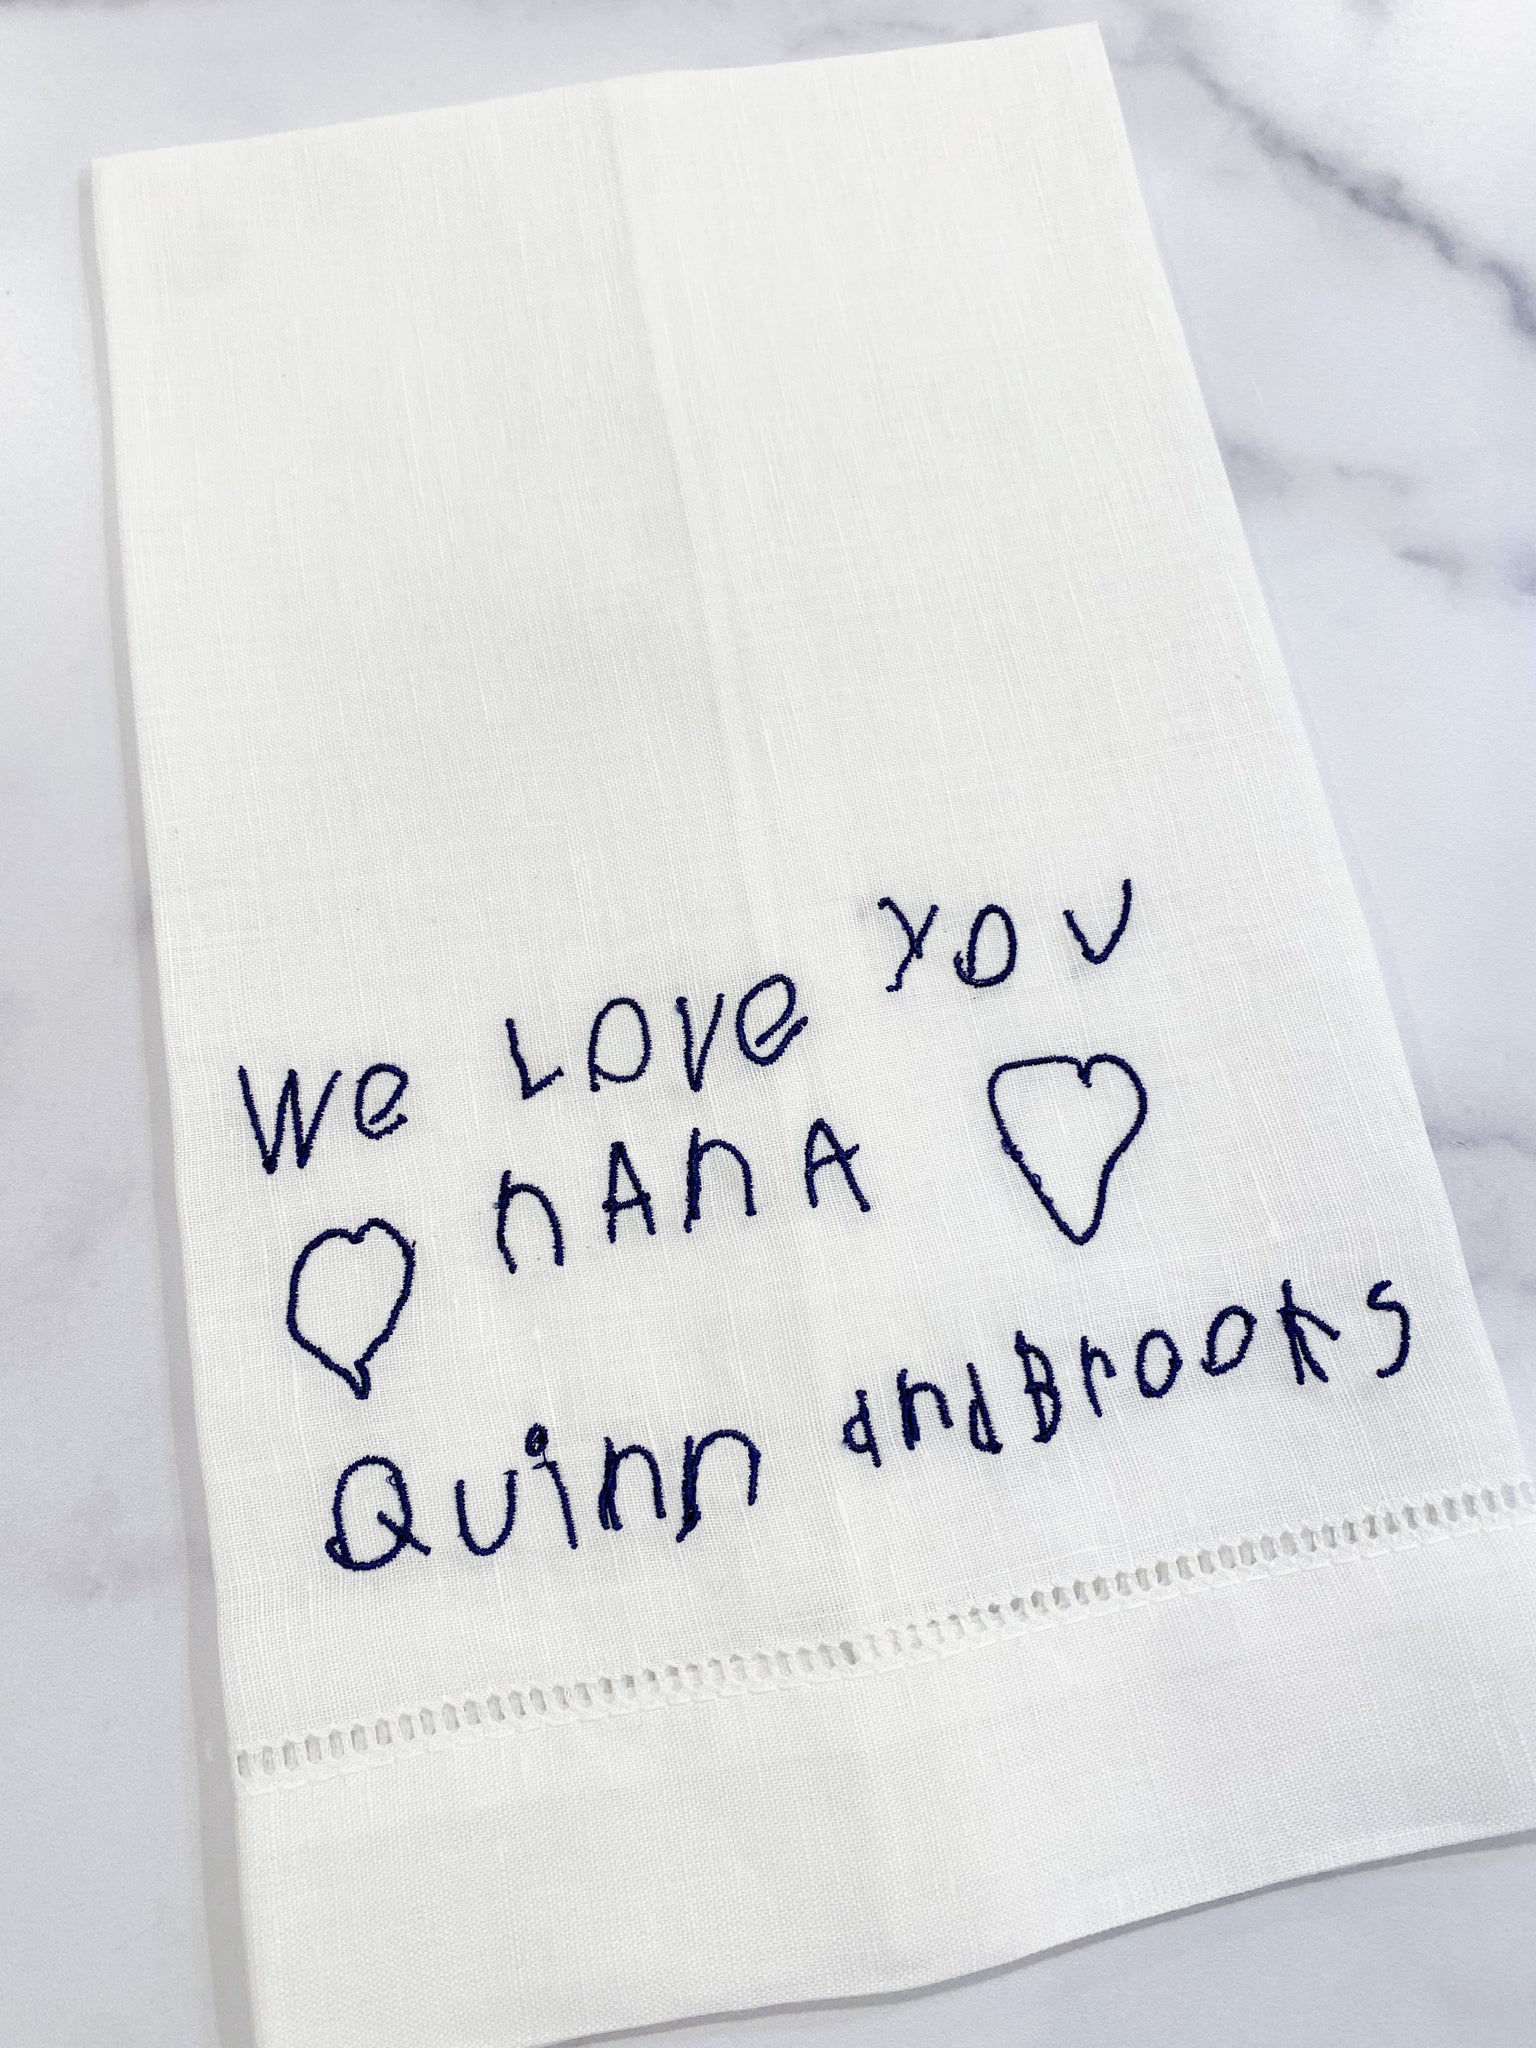 We LOVe YOU
nAnA
Quinn andBrooks